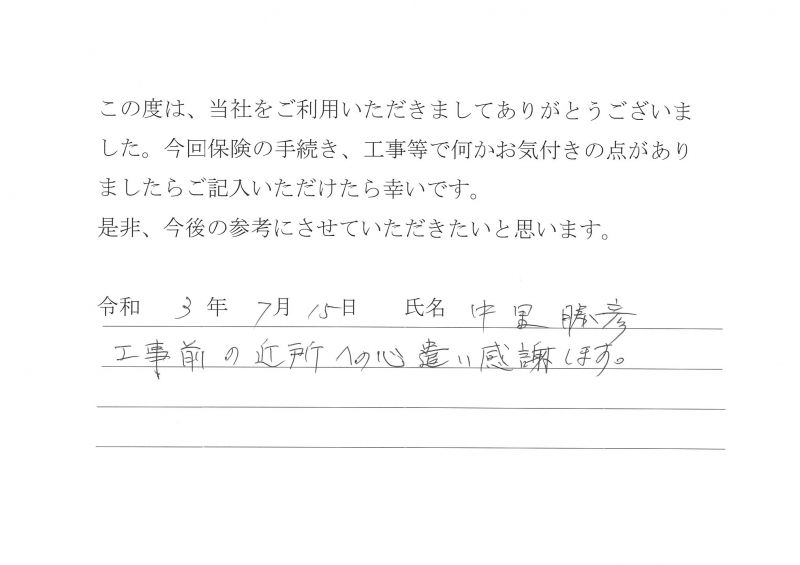 この度は、当社をご利用いただきましてありがとうございま
した。今回保険の手続き、工事等で何かお気付きの点があり
ましたらご記入いただけたら幸いです。
是非、今後の参考にさせていただきたいと思います。
令和 3 年 7月 15日 氏名 中里 勝彦
工事前の近所への心遣い感謝します。